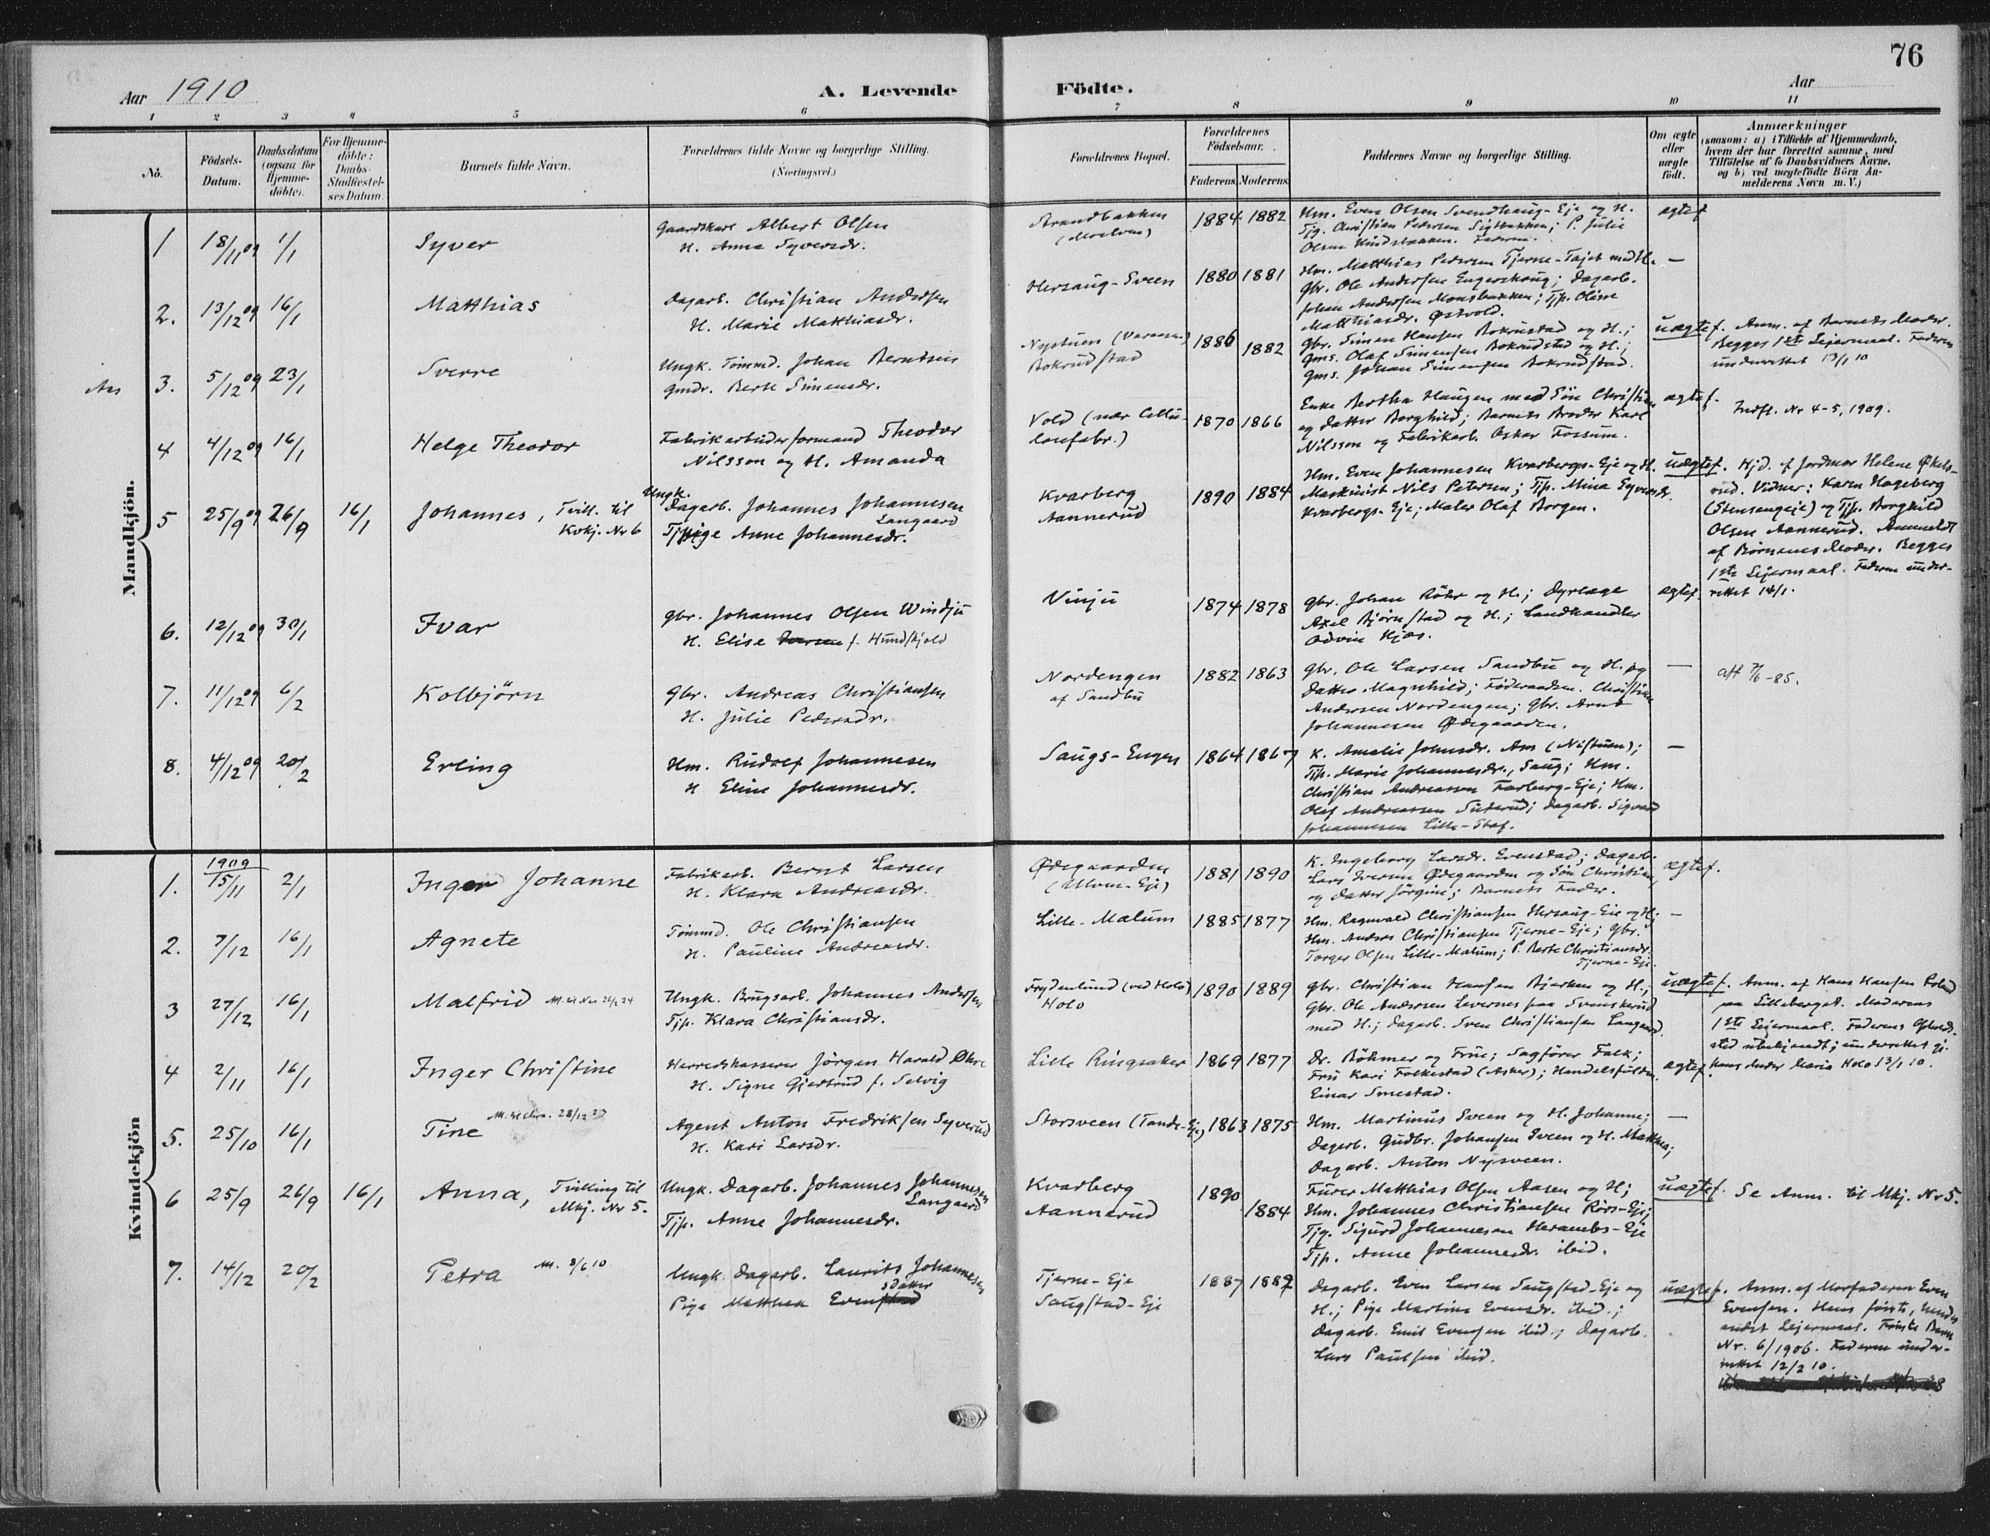 76
Aar 1910
A. Levende
Födte.
Aar
1 2 3 4 5 6 7 8 9 10 11
No.
Födsels-
Datum.
Daabsdatum
(ogsaa for
Hjemme-
döbte).
For Hjemme-
döbte:
Daabs-
Stadfæstel-
ses Datum.
Barnets fulde Navn.
Forældrenes fulde Navne og borgerlige Stilling.
(Næringsvei.)
Forældrenes Bopæl.
Forældrenes
Födselsaar.
Faderens. Moderens.
Faddernes Navne og borgerlige Stilling.
Om ægte
eller
uægte
födt.
Anmærkninger
(saasom: a) i Tilfælde af Hjemmedaab,
hvem der har forrettet samme, med
Tilföielse af to Daabsvidners Navne,
og b) ved uægtefödte Börn An-
melderens Navn m. V.)
Mandkjön.
1 18/11 09 1/1 Syver
Gaardskarl Albert Olsen
H. Anna Syversdr.
Strandbakken
1884 1882
Hm. Even Olsen Svendhaug-Eje og H.
Tjg. Christian Pedersen Sigbakken; P. Julie
Olsen Faderen.
ægtef.
2. 13/12 09 16/1 Matthias
Dagarb. Christian Andersen
H. Marie Matthiasdr.
Hersaug-Sveen
1880 1881
Hm. Matthias Pedersen Tjerne-Tajet med H.
Gbr. Ole Andersen Engerskaug; Dagarb.
Johan Andersen Monsbakken; Tjp. Oline
Matthiasdr. Østvold.
—
3. 5/12 09 23/1 Sverre
Ungk. Tömmd. Johan Berntsen
Gmdr. Berte Simensdr.
Nystuen
Bokrudstad
1886
1882
Gbr. Simen Hansen Bokrustad og H.;
Gms. Olaf Simensen Bokrudstad og H.;
Gms. Johan Simensen Bokrudstad.
uægtef.
Anm. af Barnets Moder.
Begges 1ste Lejermaal. Faderen
underrettet 13/1 10
4 4/12 09 16/1 Helge Theodor
Fabrikarbeiderformand Theodor
Nilsson og H. Amanda
Vold (nær Cellu-
losefabr.)
1870 1866
Enke Bertha Haugen med Søn Christian
og Datter Borghild; Barnets Broder Karl
Nilsson og Fabrikarb. Oskar Fossum.
ægtef.
Indfl. Nr 4-5, 1909.
5 25/9 09 26/9 16/1 Johannes, Tvill. til
Kvkj. Nr 6
Ungk.
Dagarb. Johannes Johannesen
Langaard
Anne Johannesdr.
Kvarberg
Aannerud
1890 1884
Hm. Even Johannesen Kvarbergs-Eje og H.
Maskinist Nils Petersen; Tjp. Mina Syversdr.
Kvarbergs-Eje; Maler Olaf Borgen.
uægtef.
Hjd. af Jordmor Helene Økels-
rud. Vidner: Karen Hageberg
(Stensengeje) og Tjp. Borghild
Olsen Aannerud. Anmeldt
af Børnenes Moder. Begges
1ste Lejermaal. Faderen under-
rettet 14/1.
6. 12/12 09 30/1 Ivar
Gbr. Johannes Olsen Windju
H. Elise f. Hundskjold
Vinju
1874 1878
Gbr. Johan Röhr og H.; Dyrlæge
Axel Bjørnstad og H.; Landhandler
Odvin Kjos.
ægtef.
7. 11/12 09 6/2 Kolbjörn
Gbr. Andreas Christiansen
H. Julie Pedersdr.
Nordengen
af Sandbu
1882 1863
Gbr. Ole Larsen Sandbu og H. og
Datter Magnhild; Føderaadsm. Christian
Andersen Nordengen; Gbr. Arnt
Johannesen Ødegaarden.
—
8. 4/12 09 20/2 Erling
Hm. Rudolf Johannesen
H Eline Johannesdr.
Saugs-Engen
1864 1867
K. Amalie Johnsdr. Aas (Nistuen);
Tjp. Marie Johannesdr., Saug; Hm.
Christian Andreassen Farberg-Eje; Hm.
Olaf Andreassen Suterud; Dagarb. Sigvard
Johannesen Lille-Staf.
—
Kvindekjön
1909
1. 15/11 2/1 Inger Johanne
Fabrikarb. Bernt Larsen
H. Klara Andreasdr.
Ødegaarden
(Ulven-Eje)
1881 1890
K. Ingeborg Larsdr. Evenstad; Dagarb.
Lars Iversen Ødegaarden og Søn Christian,
og Datter Jörgine; Barnets Fader.
ægtef.
2. 7/12 16/1 Agnete
Tömmd. Ole Christiansen
H. Pauline Andreasdr.
Lille-Malum
1885 1877
Hm. Ragnvald Christiansen Hersaug-Eje og H;
Hm. Andreas Christiansen Tjerne-Eje; Gbr.
Torger Olsen Lille-Malum; P. Berte Christiansdr.
Tjerne-Eje.
—
3 27/12 16/1 Malfrid
Ungk. Brugsarb. Johannes Andersen
Tjp. Klara Christiansdr.
Frydenlund (ved Holo)
Holo
1890 1889
Gbr. Christian Hansen Bjerken og H.;
Gbr. Ole Andersen Levernes paa Svenskerud
med H.; Dagarb. Sven Christiansen Langaard.
uægtef.
Anm. af Hans Hansen
paa Lilleberget. Moderens
1ste Lejermaal. Faderens Opholds-
sted ubekjendt; underrettet gj.
hans Moder Maria Holo 13/1 10.
4 2/11 16/1 Inger Christine
Herredskasserer Jörgen Harald Økre
H. Signe Gjertrud f. Selvig
Lille Ringsaker
1869 1877
Dr. Böhmer og Frue; Sagfører Falk;
Fru Kari Folkestad (Asker); Handelsfuldm.
Einar Smestad.
ægtef.
5. 25/10 16/1 Tine
Agent Anton Fredriksen Syverud
H. Kari Larsdr.
Storsveen
1863 1875
Hm. Martinus Sveen og H. Johanne;
Dagarb. Gudbr. Johansen Sveen og H. Mathea;
Dagarb. Anton Nysveen.
—
6 25/9 26/9 16/1 Anna, Tvilling til
Mkj. Nr 5.
Ungk. Dagarb. Johannes Johannesen
Langaard
Tjp. Anne Johannesdr.
Kvarberg
Aannerud
1890
1884
Furer Matthias Olsen Aasen og H;
Hm. Johannes Christiansen Rörs-Eje;
Tjg. Sigurd Johannesen Heranebs-Eje
Tjp. Anne Johannesdr. ibid.
uægtef.
Se Anm. til Mkj. Nr 5.
7. 14/12 20/2 Petra
Ungk. Dagarb. Laurits Johannesen
Pige Matthea
Tjerne-Eje
Saugstad-Eje
1887 1882
Dagarb. Even Larsen Saugstad-Eje og
H.; Pige Martine Evensdr. ibid.;
Dagarb. Emil Evensen ibid.; Dagarb.
Lars Paulsen ibid.
uægtef.
Anm. af Morfaderen Even
Evensen. Hans første, hendes
andet Lejermaal. Første Barn
Nr. 6/1906. Faderen under-
rettet 12/2 10.